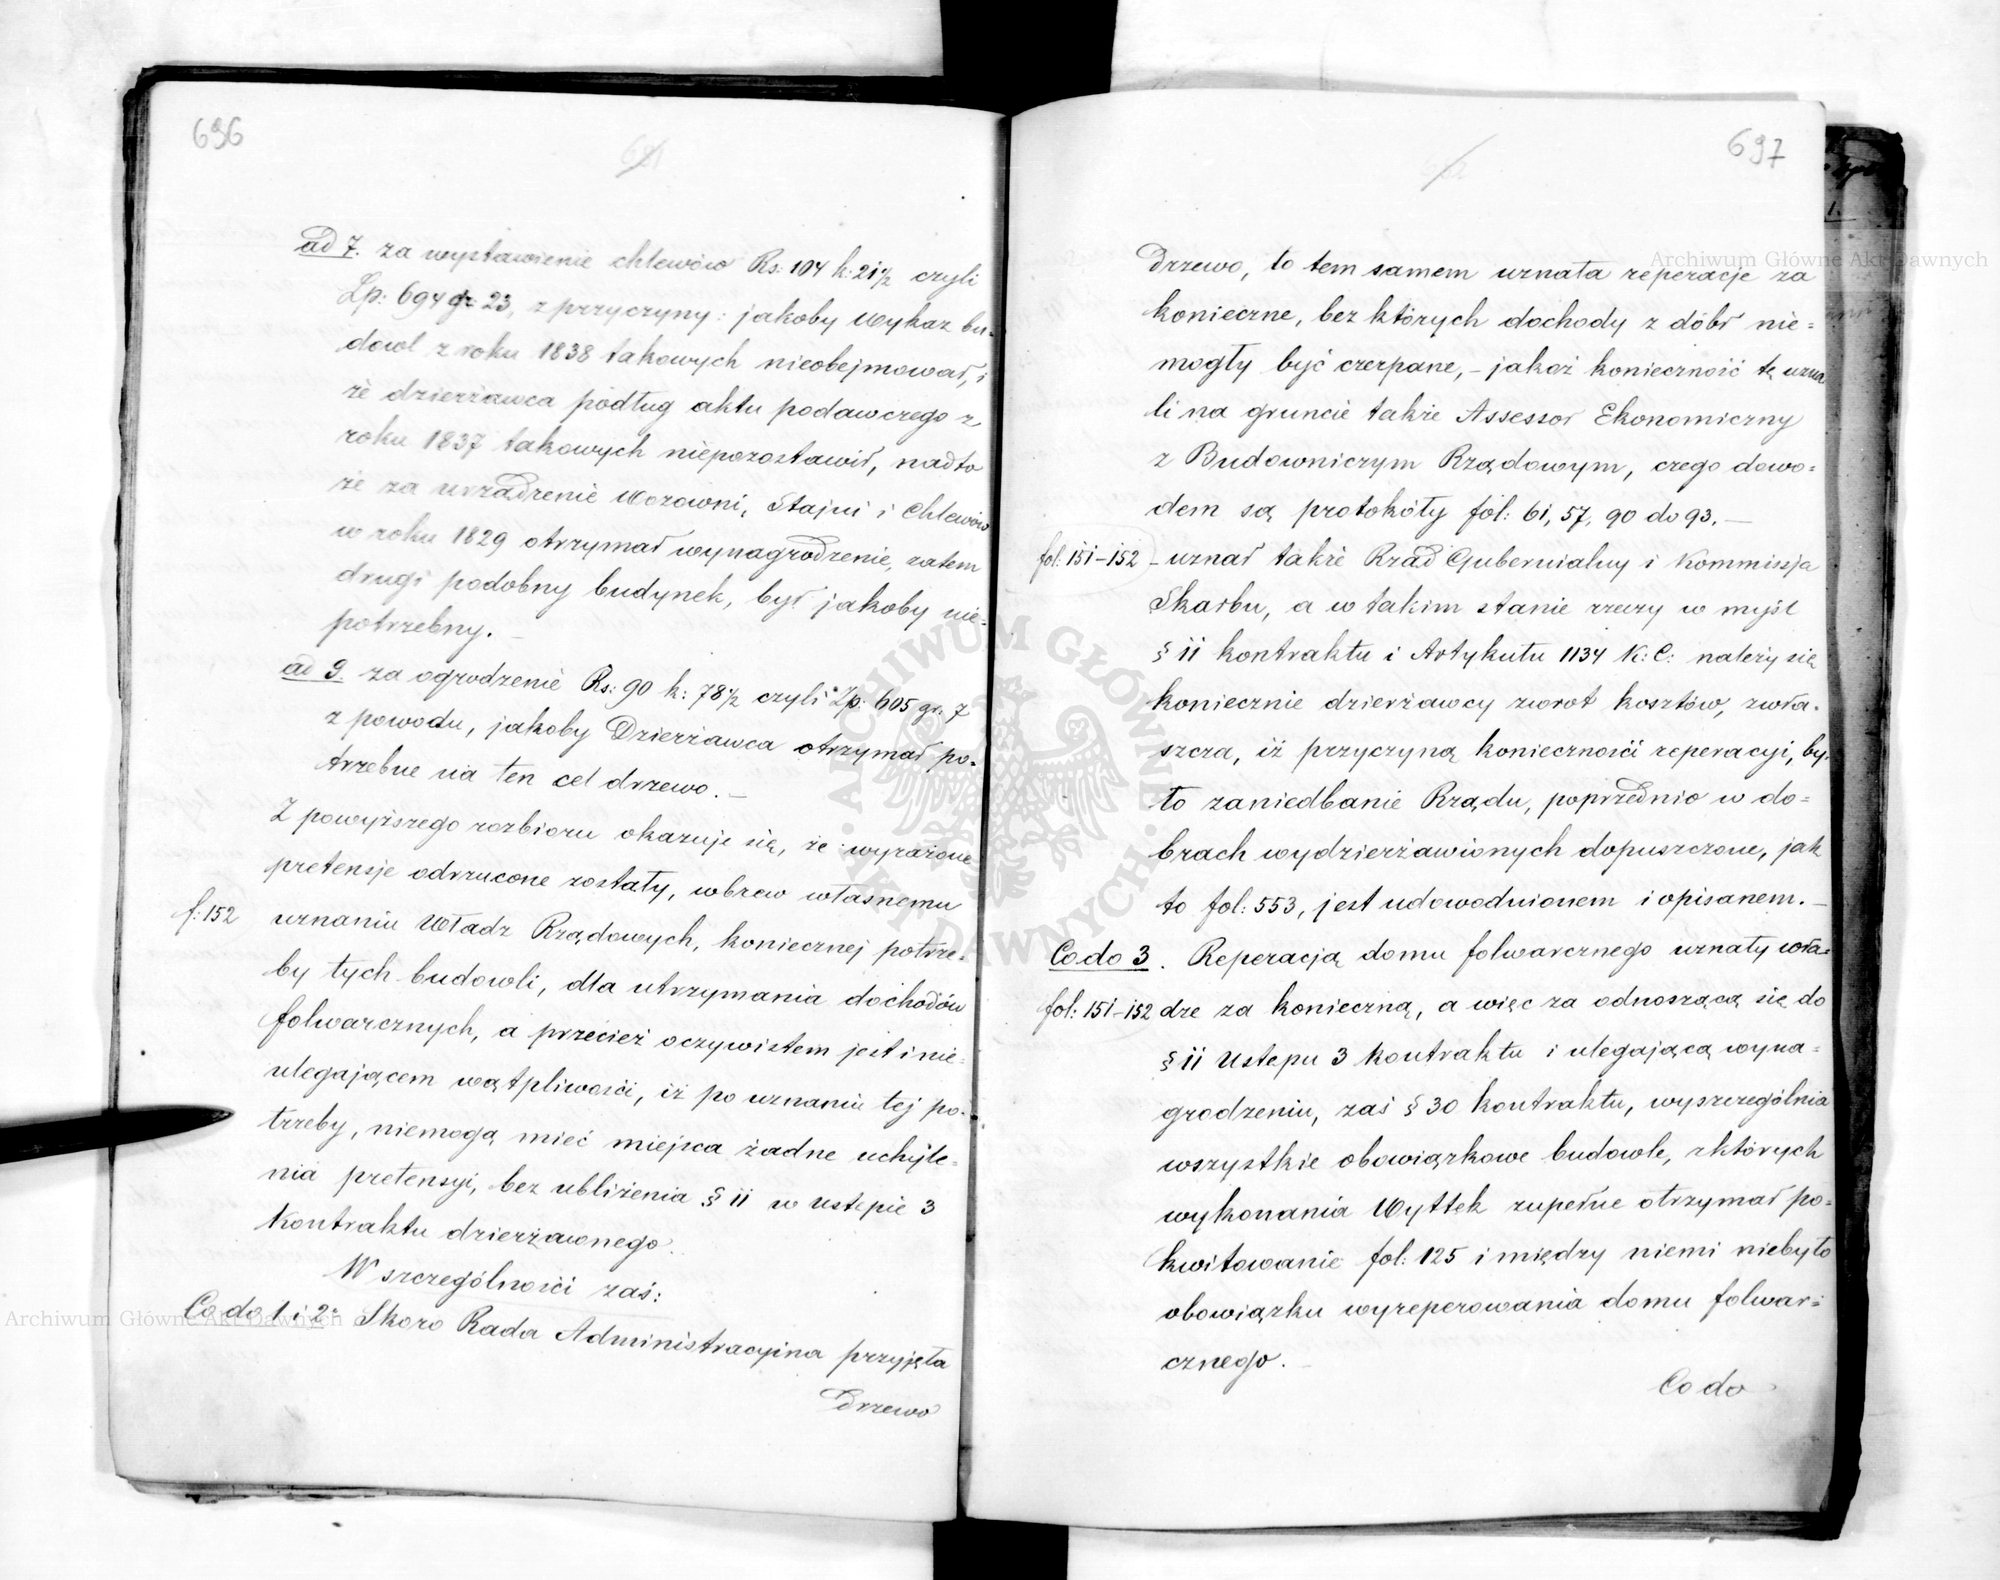 696
ad 7. za wystawienie chlewów Rs: 104 k: 21½ czyli
Zp: 694 gr 23, z przyczyny: jakoby Wykaz bu-
dowl z roku 1838 takowych nieobejmował, i
że dzierżawca podług aktu podawczego z
roku 1837 takowych niepozostawił, nadto
że za urządzenie Wozowni, Stajni i Chlewów
w roku 1829 otrzymał wynagrodzenie, zatem
drugi podobny budynek, był jakoby nie=
potrzebny. —
ad 9. za ogrodzenie Rs: 90 k: 78½ czyli Zp: 605 gr: 7
z powodu, jakoby Dzierżawca otrzymał po-
trzebne na ten cel drzewo. —
Z powyższego rozbioru okazuje się, że wyrażone
pretensje odrzucone zostały, wbrew własnemu
f: 152 uznaniu Władz Rządowych, koniecznej potrze-
by tych budowli, dla utrzymania dochodów
folwarcznych, a przecież oczywistem jest i nie-
ulegającem wątpliwości, iż po uznaniu tej po-
trzeby, niemogą mieć miejsca żadne uchyle-
nia pretensyi, bez ubliżenia § 11 w Ustępie 3
Kontraktu dzierżawnego.
W szczególności zaś:
Co do 1 i 2° Skoro Rada Administracyjna przyjęła
Drzewo
697
Drzewo, to tem samem uznała reperacje za
konieczne, bez których dochody z dóbr nie=
mogły być czerpane, – jakoż konieczność tę uzna
li na gruncie także Assessor Ekonomiczny
z Budowniczym Rządowym, czego dowo=
dem są protokóły fol: 61, 57, 90 do 93. —
fol: 151–152 – uznał także Rząd Gubernialny i Kommissja
Skarbu, a w takim stanie rzeczy w myśl
§ 11 kontraktu i Artykułu 1134 K: C: należy się
koniecznie dzierżawcy zwrot kosztów, zwła-
szcza, iż przyczyną konieczności reperacyi, by-
ło zaniedbanie Rządu, poprzednio w do=
brach wydzierżawionych dopuszczone, jak
to fol: 553, jest udowodnionem i opisanem. —
Co do 3. Reperacją domu folwarcznego uznały wła=
fol: 151–152 dze za konieczną, a więc za odnoszącą się do
§ 11 Ustępu 3 kontraktu i ulegającą wyna=
grodzeniu, zaś § 30 kontraktu, wyszczególnia
wszystkie obowiązkowe budowle, z których
wykonania Wyttek zupełne otrzymał po=
kwitowanie fol: 125 i między niemi niebyło
obowiązku wyreperowania domu folwar=
cznego. —
Co do
Archiwum Główne Akt Dawnych
Archiwum Główne Akt Dawnych
ARCHIWUM GŁÓWNE AKT DAWNYCH